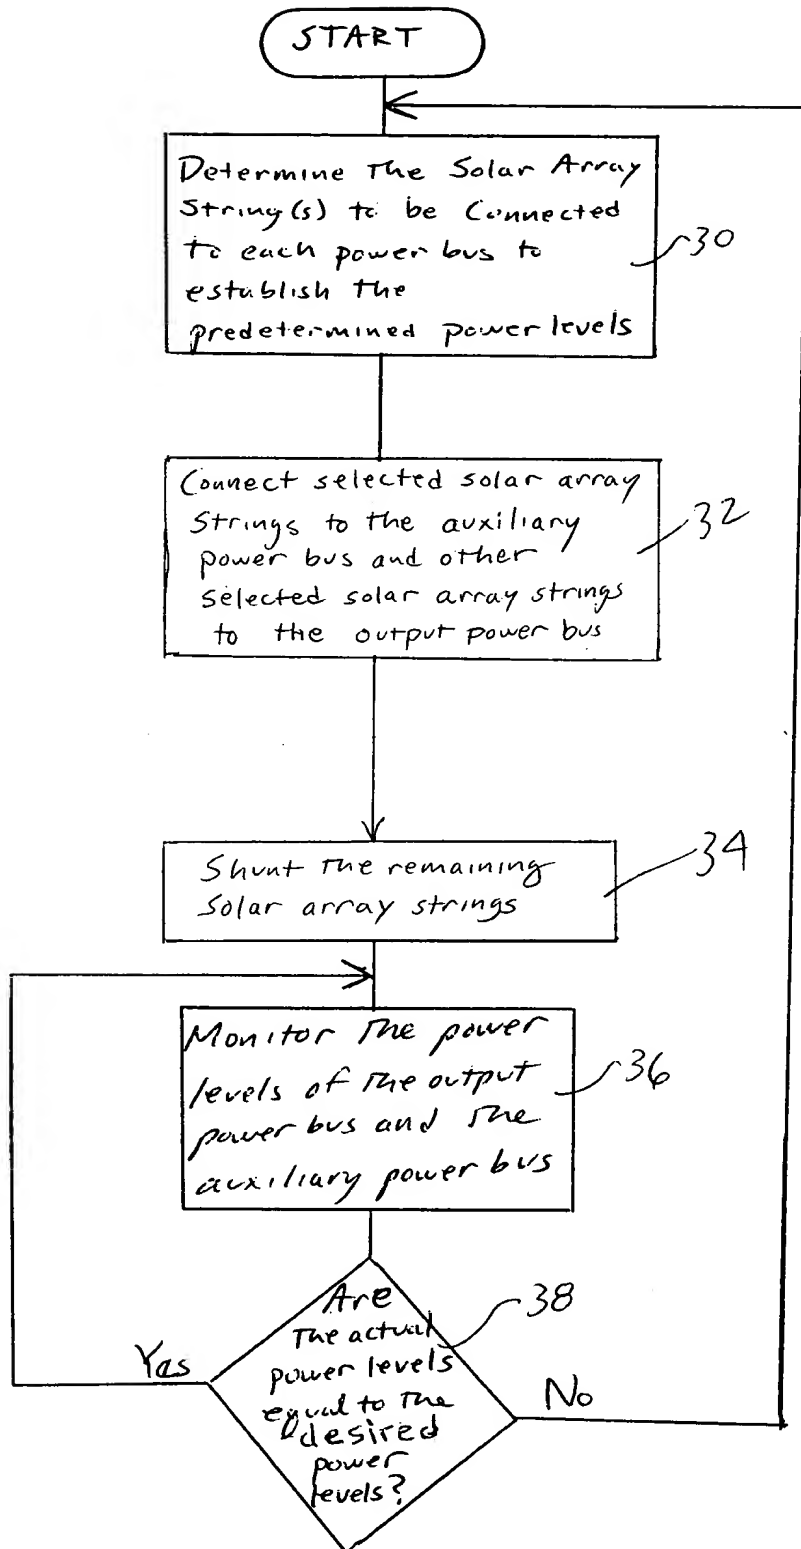 START
Determine The Solar Array
String(s) to be Connected
to each power bus to
establish the
predetermined power levels
30
Connect selected solar array
Strings to the auxiliary
power bus and other
selected solar array strings
to the output power bus
32
Shunt the remaining
Solar array strings
34
Monitor The power
levels of The output
power bus and The
auxiliary power bus
36
Are
The actual
power levels
equal to The
desired
power
levels?
38
Yes
No